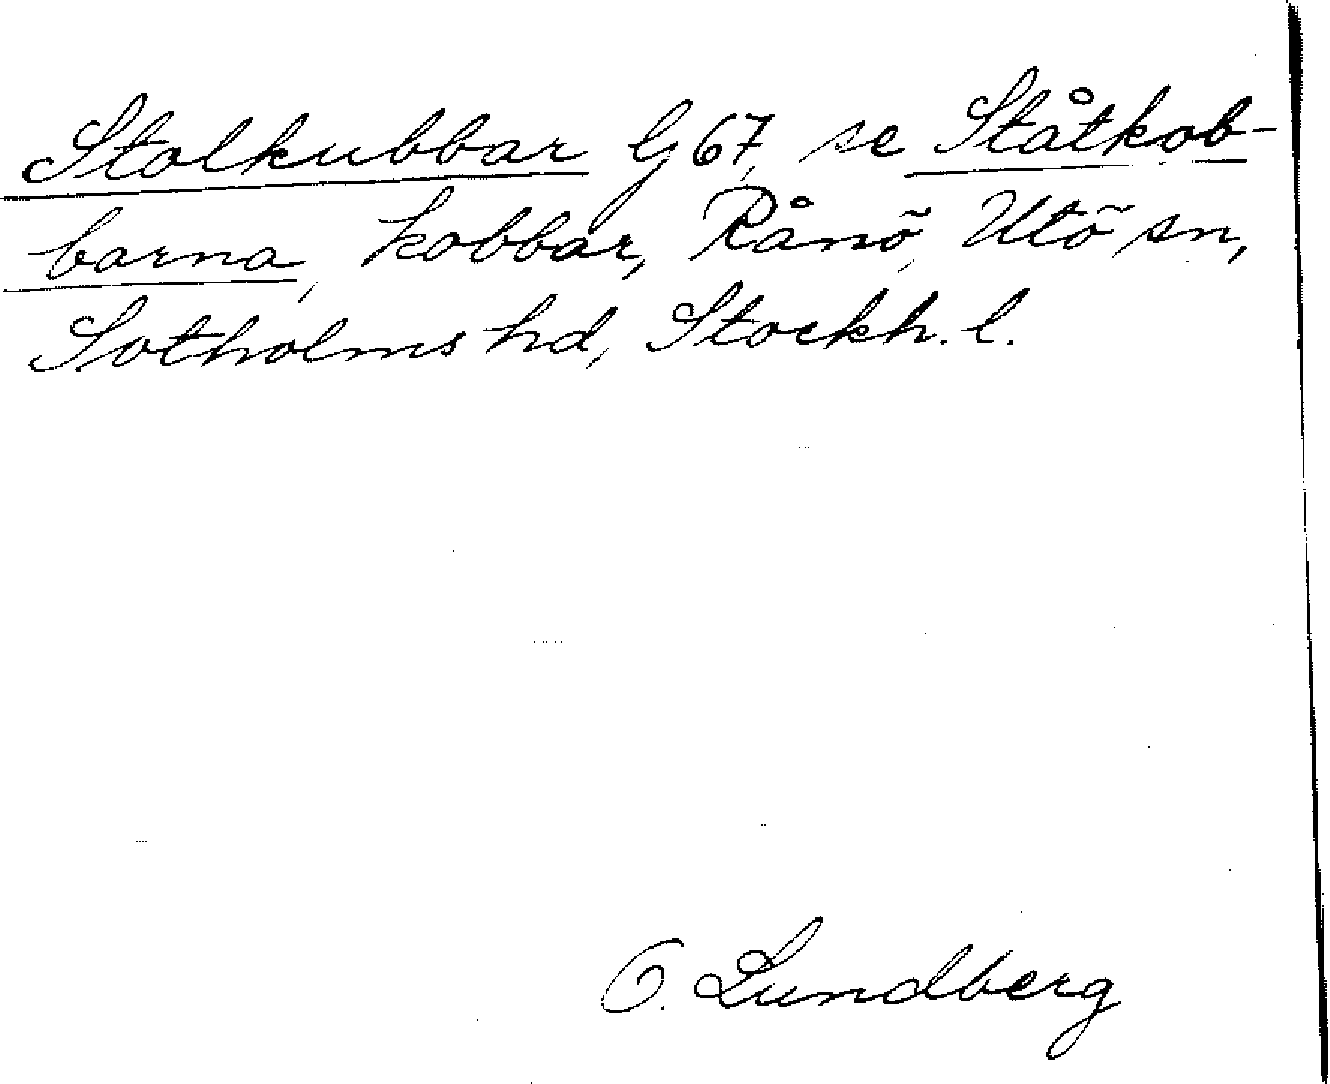 Stolkubbar G 67, se Ståtkob-
barna, kobbar, Rånö, Utö sn,
Sotholms hd, Stockh. l.
O. Lundberg